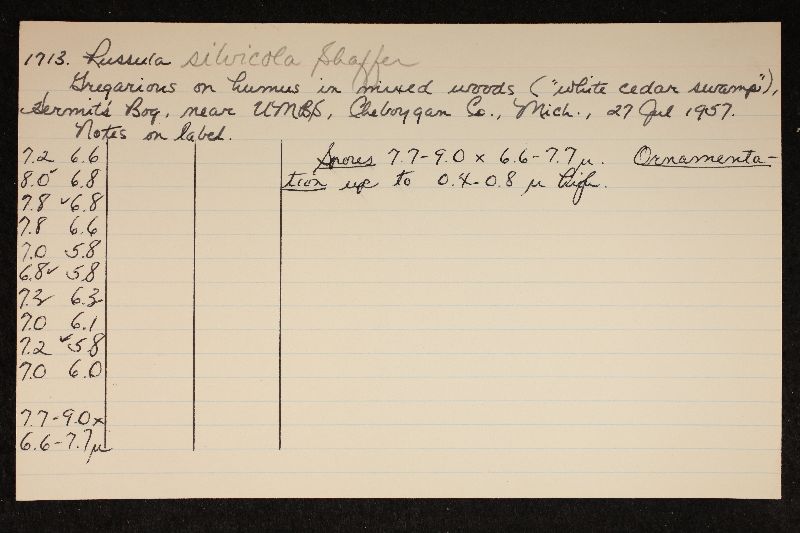 1713. Russula silvicola Shaffer
Gregarious on humus in mixed woods ("white cedar swamp"),
Hermit's Bog, near UMBS, Cheboygan Co., Mich., 27 Jul 1957.
Notes on label.
7.2 6.6
8.0 6.8
7.8 ✓6.8
7.8 6.6
7.0 5.8
6.8✓ 5.8
7.2 6.3
7.0 6.1
7.2 ✓5.8
7.0 6.0
7.7-9.0 x
6.6-7.7 µ
Spores 7.7-9.0 x 6.6-7.7 µ. Ornamenta-
tion up to 0.4-0.8 µ high.